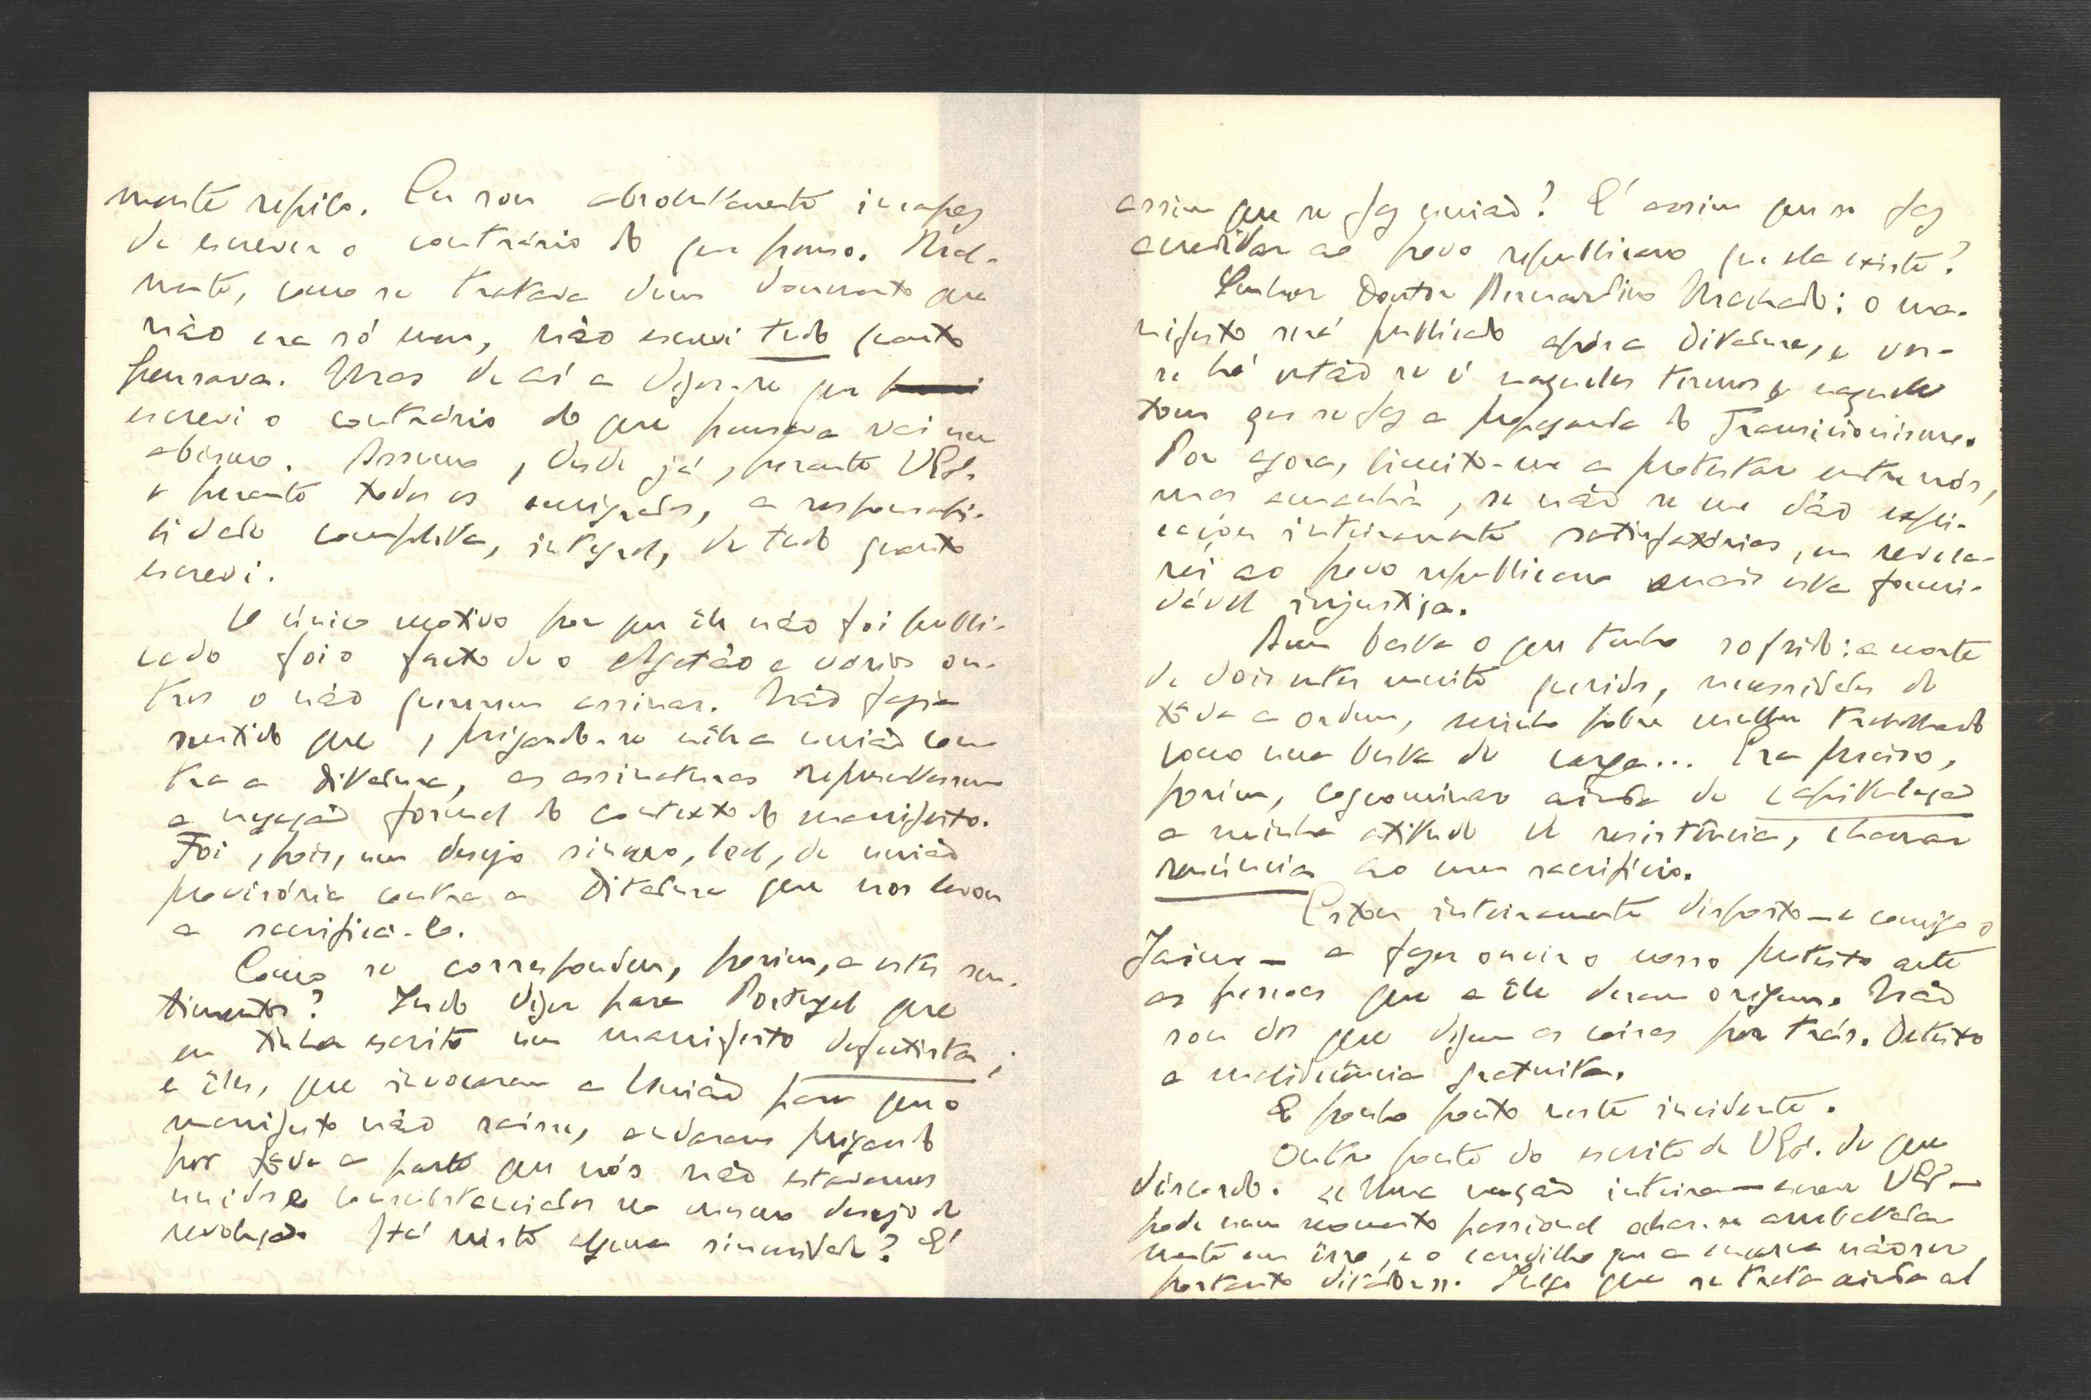 mente repilo. Eu sou absolutamente incapaz
de escrever o contrário do que penso. Real-
mente, como se tratava dum documento que
não era só meu, não escrevi tudo quanto
pensava. Mas daí a dizer-se que
escrevi o contrário do que pensava vai um
abismo. Assumo, desde já, perante VExª.
e perante todos os emigrados, a responsabi-
lidade completa, integral, de tudo quanto
escrevi.
O único motivo por que êle não foi publi-
cado foi o facto de o Agatão e vários ou-
tros o não quererem assinar. Não fazia
sentido que, pregando-se nêle a união con-
tra a Ditadura, as assinaturas representassem
a negação formal do contexto do manifesto.
Foi, pois, um desejo sincero, leal, de união
provisória contra a Ditadura que nos levou
a sacrificá-lo.
Como se correspondeu, porém, a estes sen-
timentos? Indo dizer para Portugal que
eu tinha escrito um manifesto defeitista;
e êles, que invocaram a União para que o
manifesto não saísse, andaram pregando
por tôda a parte que nós não estavamos
unidos e consubstanciados no mesmo desejo de
revolução. Há nisto alguma sinceridade? É
assim que se faz união? É assim que se faz
acreditar ao povo republicano que ela existe?
Senhor Doutor Bernardino Machado: o ma-
nifesto será publicado após a Ditadura, e ver-
se há então se é naqueles termos e naquele
tom que se faz a propaganda do Transicionismo.
Por agora, limito-me a protestar entre nós,
mas amanhã, se não se me dão expli-
cações inteiramente satisfatórias, eu revela-
rei ao povo republicano mais esta formi-
dável injustiça.
Bem basta o que tenho sofrido: a morte
de dois entes muito queridos, necessidades de
tôda a ordem, minha pobre mulher trabalhando
como uma besta de carga... Era preciso,
porém, cognominar ainda de capitulação
a minha atitude de resistência, chamar
renúncia ao meu sacrifício.
Estou inteiramente disposto — e comigo o
Jaime — a fazer ouvir o nosso protesto ante
as pessoas que a êle deram origem. Não
sou dos que dizem as coisas por trás. Detesto
a maledicência gratuita.
E ponho ponto neste incidente.
Outro ponto do escrito de VExª. de que
discordo. "Uma nação inteira — escreve VExª —
pode num momento passional achar-se arrebatada-
mente em êrro, e o caudilho que a encarna não ser
portanto ditador". Julgo que se trata ainda al